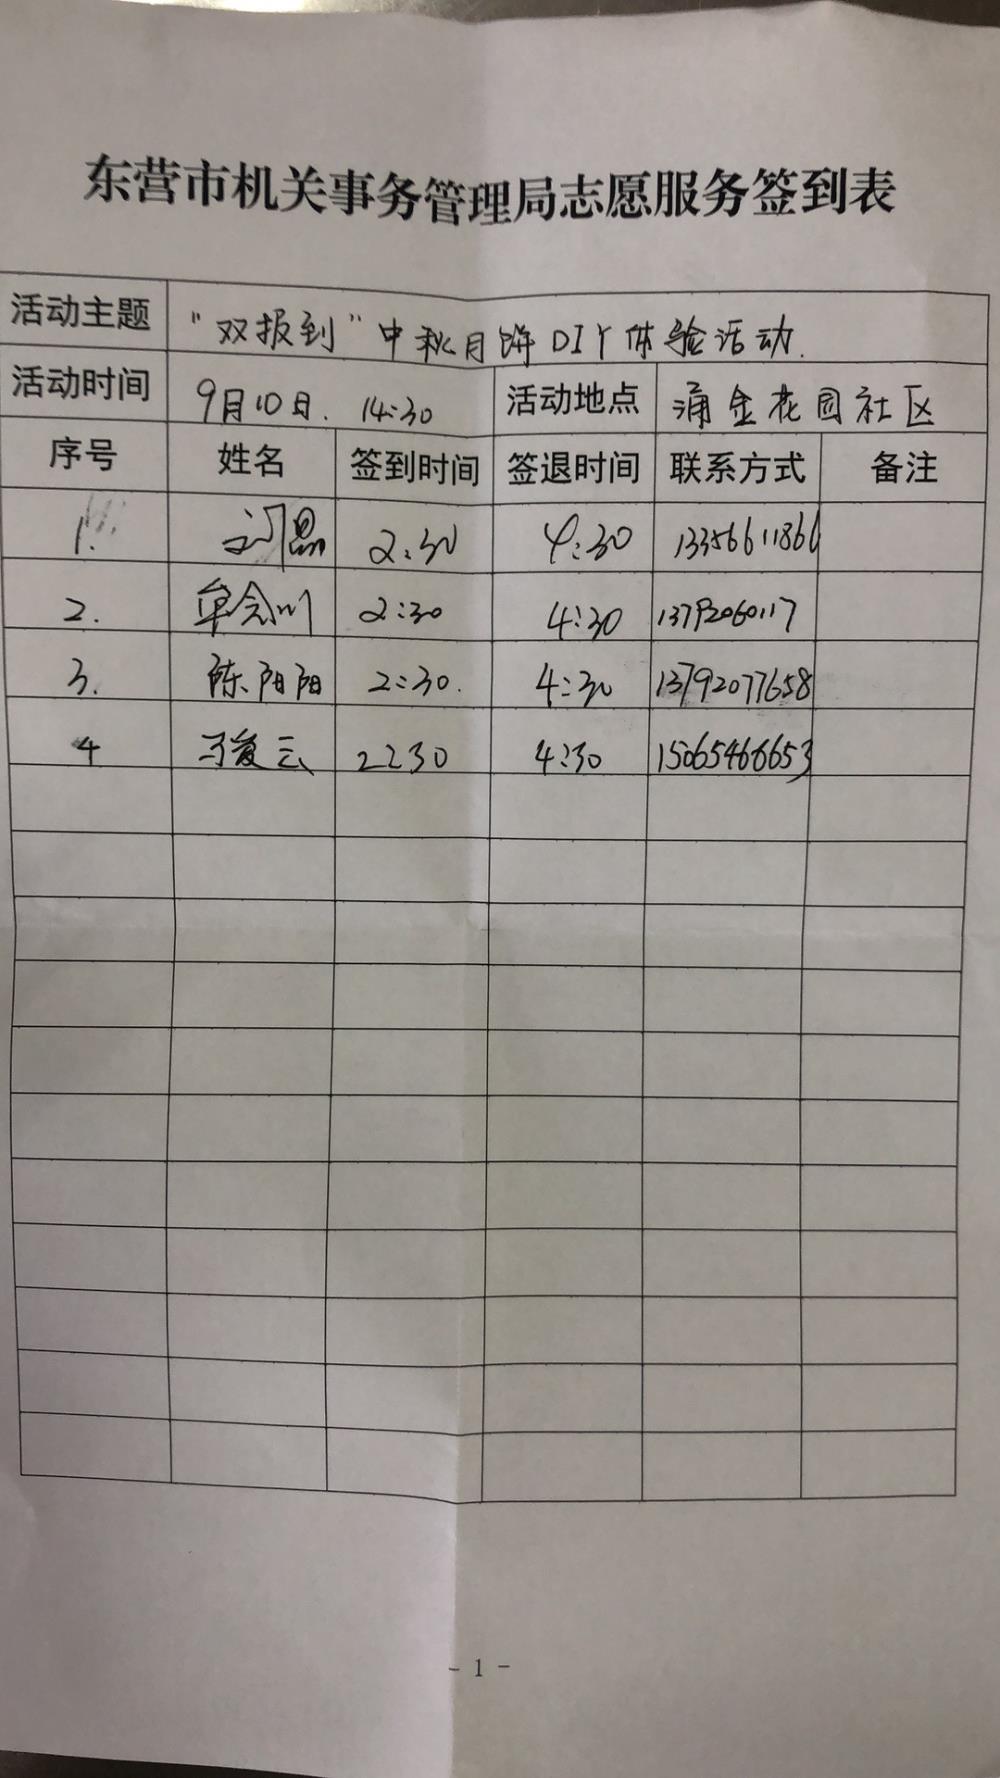 东营市机关事务管理局志愿服务签到表
活动主题 "双报到"中秋月饼DIY体验活动.
活动时间 9月10日. 14:30 活动地点 涌金花园社区
序号 姓名 签到时间 签退时间 联系方式 备注
1. 2:30 4:30 13356611866
2. 牟会川 2:30 4:30 13792060117
3. 陈阳阳 2:30. 4:30 13792077658
4 2230 4:30 15065466653
- 1 -